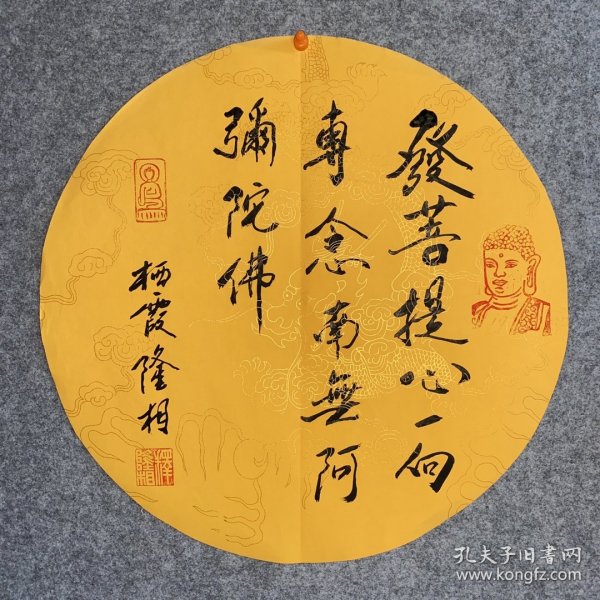 發菩提心一向
專念南無阿
彌陀佛
栖霞隆相
孔夫子旧书网
www.kongfz.com